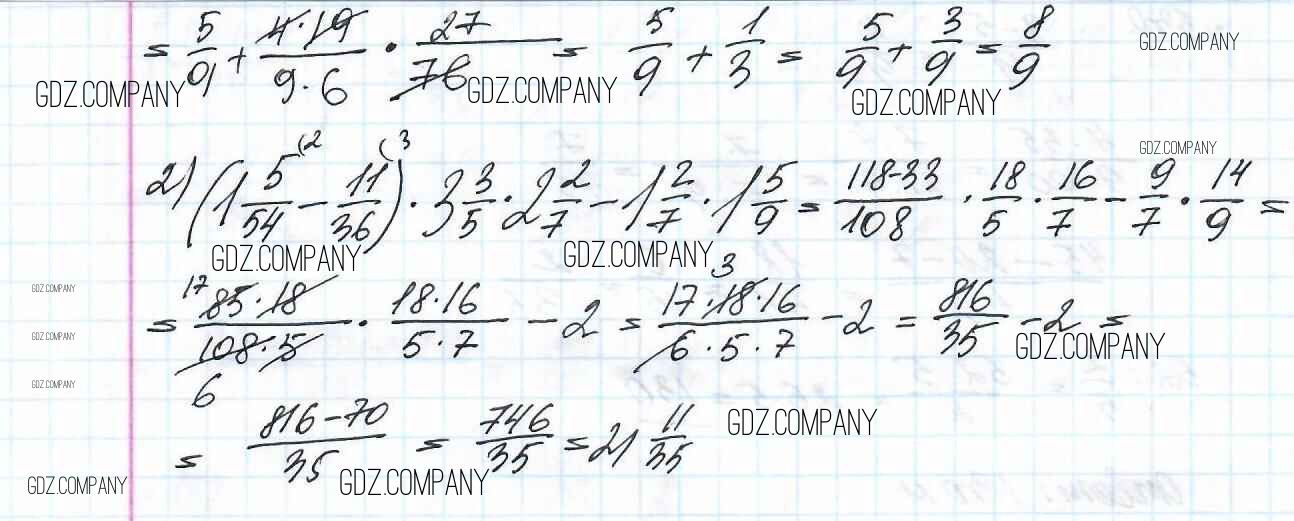 = 5/9 + 4·19/9·6 · 27/76 = 5/9 + 1/3 = 5/9 + 3/9 = 8/9
GDZ.COMPANY
GDZ.COMPANY GDZ.COMPANY GDZ.COMPANY
GDZ.COMPANY
2) (1 5/54 (2 - 11/36 (3) · 3 3/5 · 2 2/7 - 1 2/7 · 1 5/9 = 118-33/108 · 18/5 · 16/7 - 9/7 · 14/9 =
GDZ.COMPANY GDZ.COMPANY
GDZ.COMPANY
= 17 85·18/108·5 6 · 18·16/5·7 - 2 = 17·18 3·16/6·5·7 - 2 = 816/35 - 2 =
GDZ.COMPANY GDZ.COMPANY
GDZ.COMPANY
= 816-70/35 = 746/35 = 21 11/35
GDZ.COMPANY
GDZ.COMPANY GDZ.COMPANY